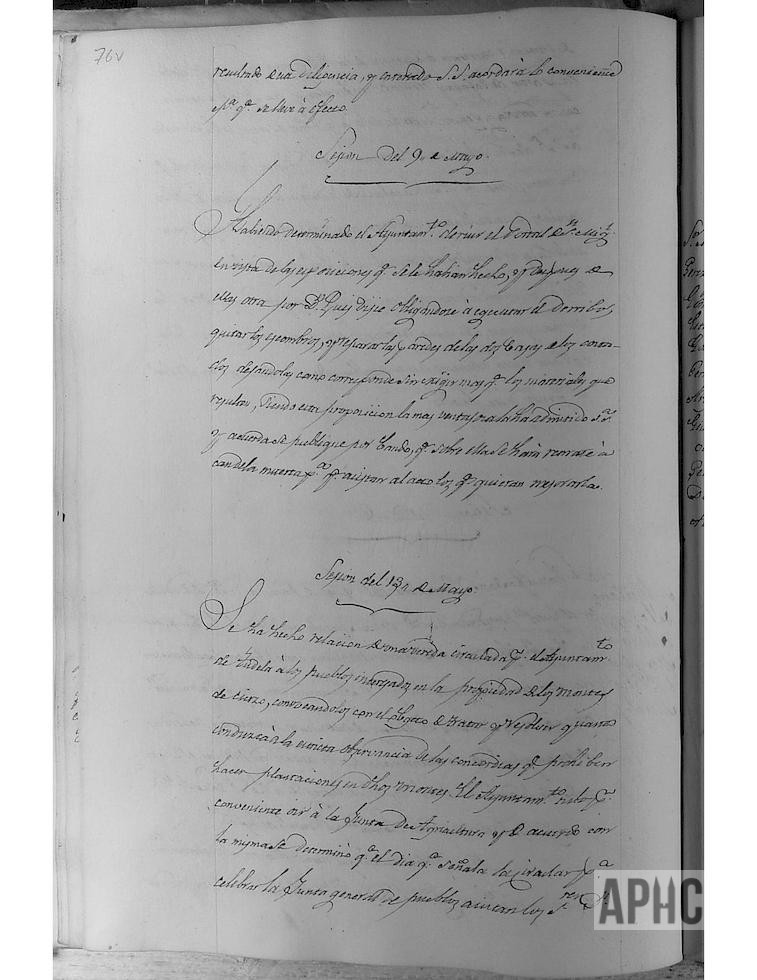 76v
resultado de la diligencia, y enterado S.S. acordará lo conveniente
p.ª q.e se lleve à efecto.
Sesion del 9 de Mayo.
Habiendo determinado el Ayuntam.to derivar el Portal de S.n Mig.l
en vista de las exposiciones q.e se le habian hecho, y despues de
ellas otra por D.n Luis dijie obligandose à egecutar el derribo,
quitar los escombros, y reparar las paredes de las dos Casas de los costa-
dos dejandolas como corresponde sin exigir mas q.e los materiales que
resulten, siendo esta proposicion la mas ventajosa la ha admitido S.S.
y acuerda se publique por bando, q.e sobre ella se hará remate à
candela muerta p.ª q.e asistan al acto los q.e quieran mejorarla.
Sesion del 13 de Mayo.
Se ha hecho relacion de una vereda circulada p.r el Ayuntam.to
de Tudela à los pueblos interesados en la propiedad de los montes
de cierzo, convocandolos con el obgeto de tratar y resolver quanto
conduzca à la estricta observancia de las concordias q.e prohiben
hacer plantaciones en dhos montes. El Ayuntam.to tubo p.r
conveniente oir à la Junta de Agricultura y de acuerdo con
la misma se determinó q.e el dia q.e señala la circular p.ª
celebrar la Junta general de pueblos asistan los S.res D.n
APHC